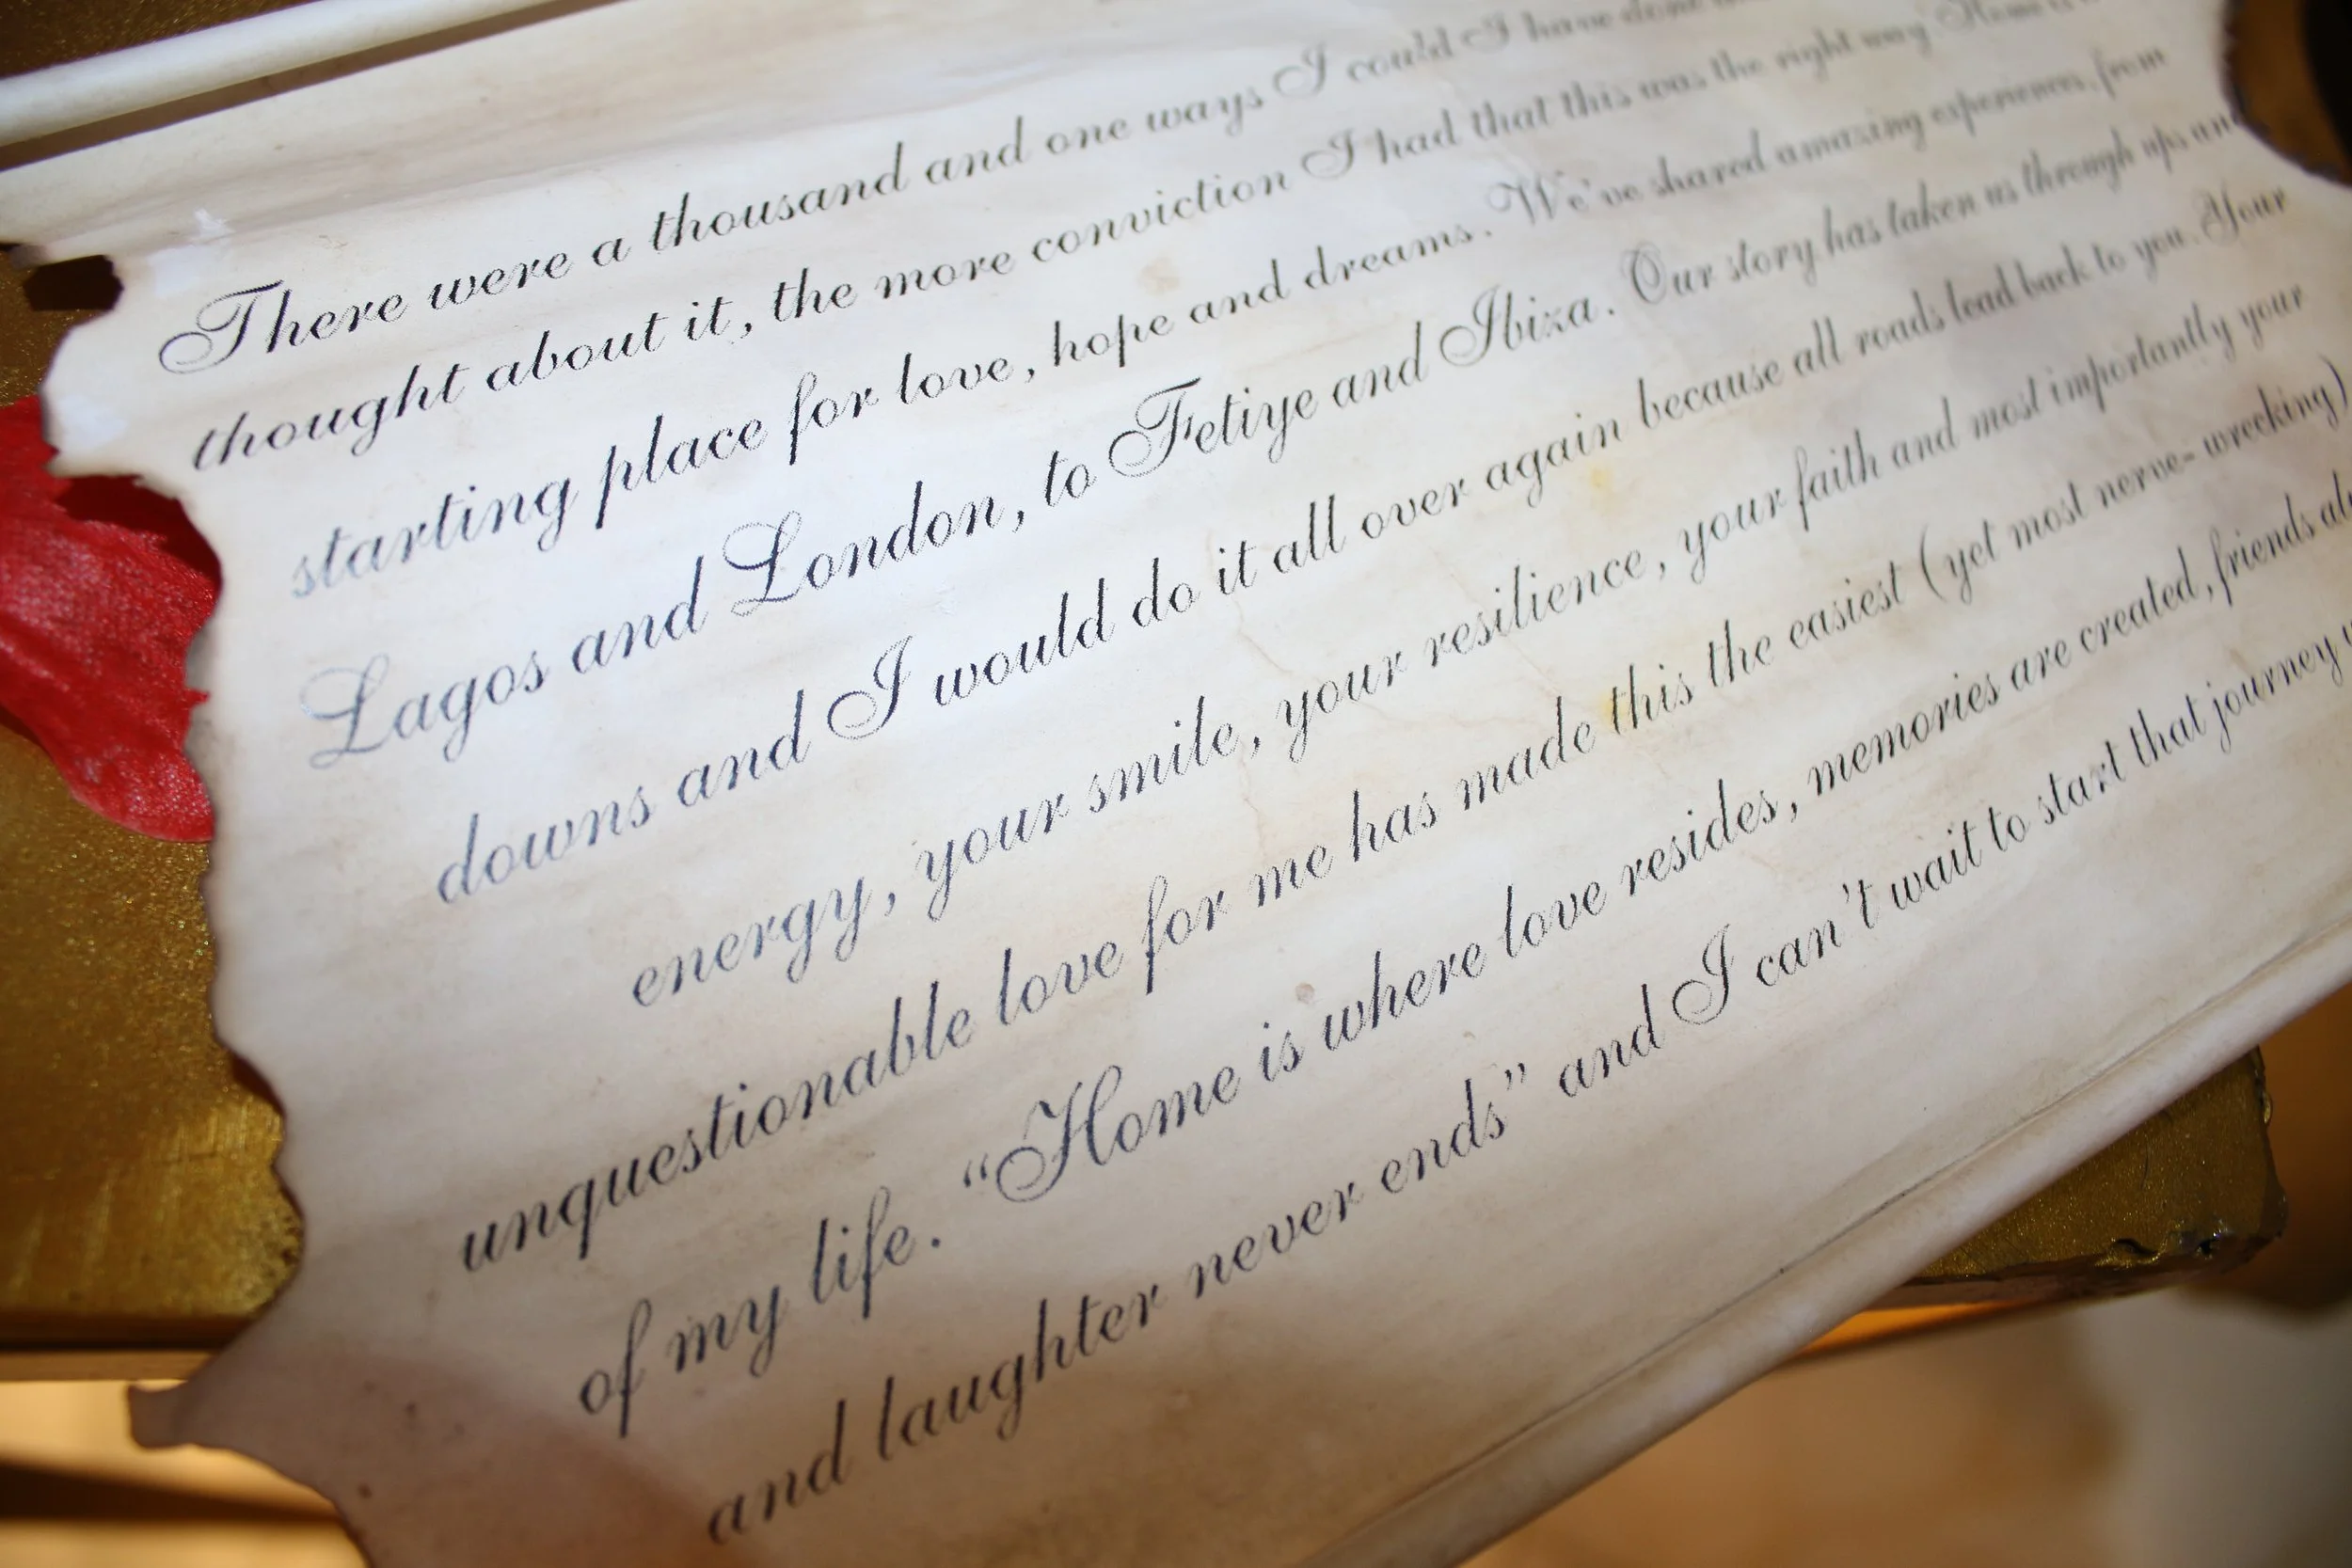 There were a thousand and one ways I could I have done
thought about it, the more conviction I had that this was the right way Home is
starting place for love, hope and dreams. We've shared amazing experiences, from
Lagos and London, to Fetiye and Ibiza. Our story has taken us through ups and
downs and I would do it all over again because all roads lead back to you. Your
energy, your smile, your resilience, your faith and most importantly your
unquestionable love for me has made this the easiest (yet most nerve-wrecking)
of my life. “Home is where love resides, memories are created, friends
and laughter never ends” and I can't wait to start that journey